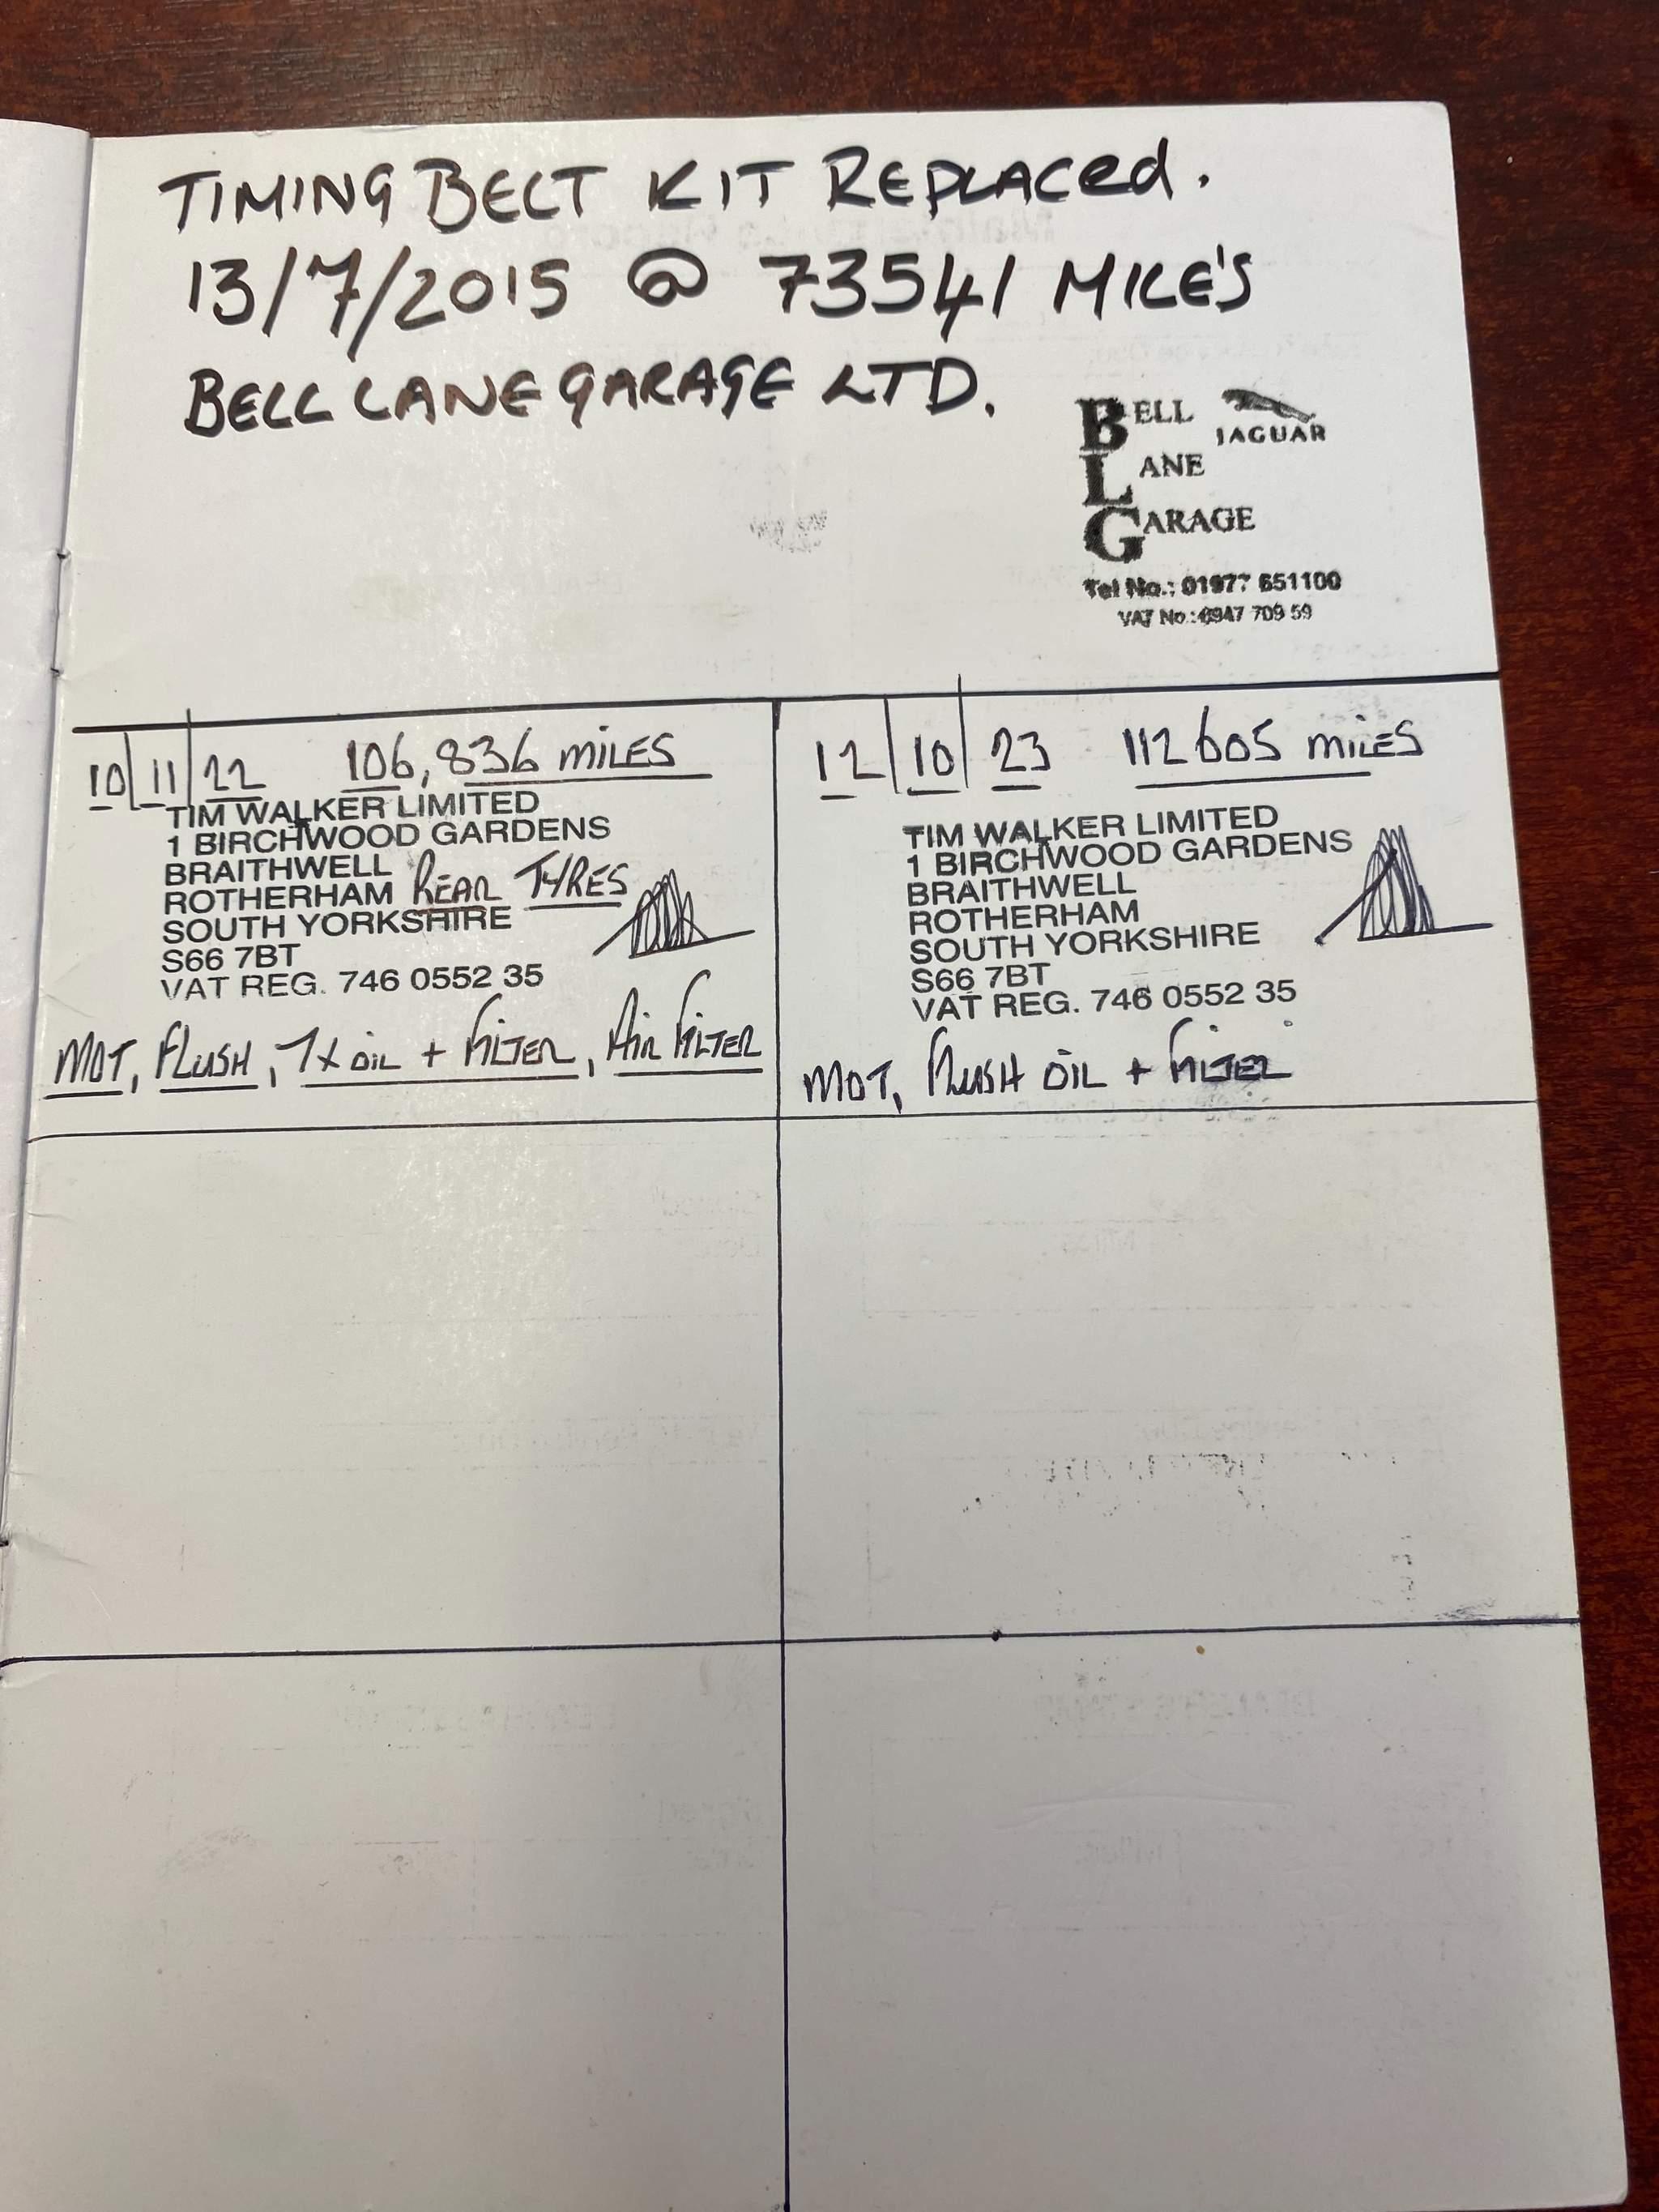 TIMING BELT KIT REPLACED.
13/7/2015 @ 73541 MILE'S
BELL LANE GARAGE LTD.
BELL JAGUAR
LANE
GARAGE
Tel No.: 01977 651100
VAT No.: 709 59
10/11/22 106,836 MILES
TIM WALKER LIMITED
1 BIRCHWOOD GARDENS
BRAITHWELL
ROTHERHAM REAR TYRES
SOUTH YORKSHIRE
S66 7BT
VAT REG. 746 0552 35
MOT, FLUSH, 7x OIL + FILTER, AIR FILTER
12/10/23 112605 MILES
TIM WALKER LIMITED
1 BIRCHWOOD GARDENS
BRAITHWELL
ROTHERHAM
SOUTH YORKSHIRE
S66 7BT
VAT REG. 746 0552 35
MOT, FLUSH OIL + FILTER